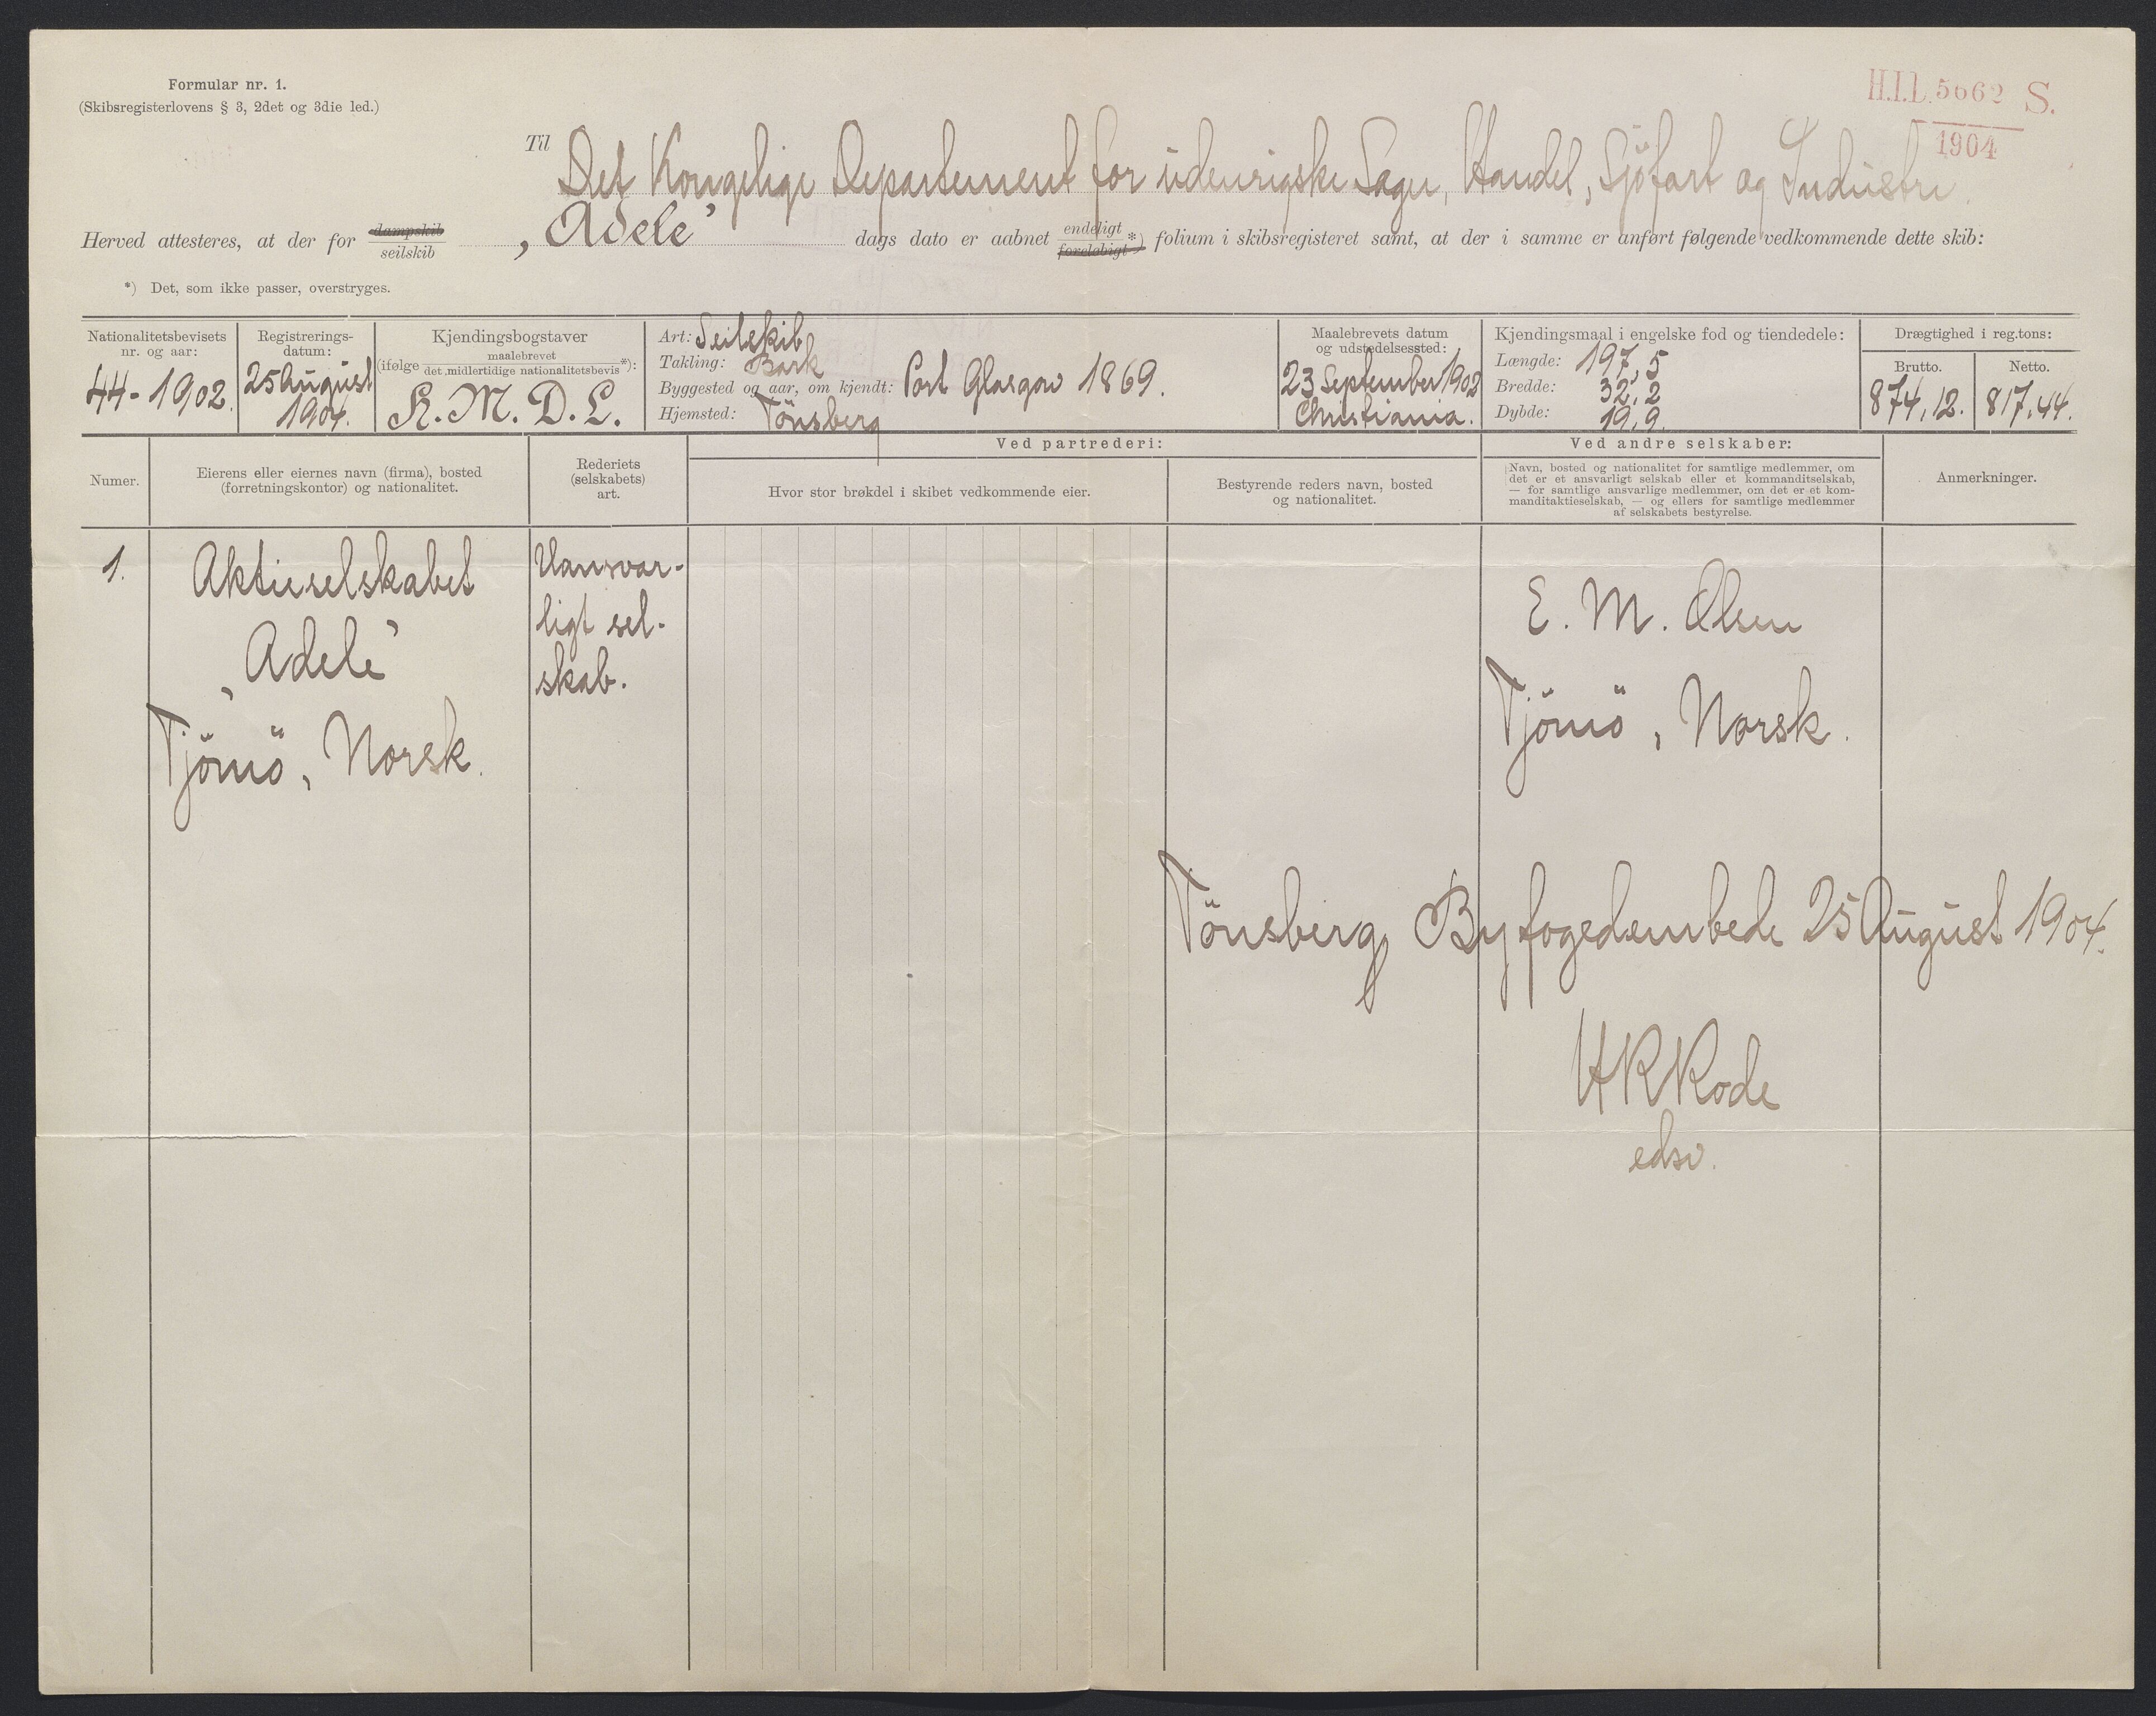 Formular nr. 1.
(Skibsregisterlovens § 3, 2det og 3die led.)
H.I.L. 5662 S.
1904
Til Det Kongelige Departement for üdenrigske Sager, Handel, Sjöfart og Indüstri.
Herved attesteres, at der for dampskib seilskib „Adele” dags dato er aabnet endeligt foreløbigt *) folium i skibsregisteret samt, at der i samme er anført følgende vedkommende dette skib:
*) Det, som ikke passer, overstryges.
Nationalitetsbevisets nr. og aar:
44-1902.
Registrerings-datum:
25 Aügüst
1904.
Kjendingsbogstaver
(ifølge maalebrevet det midlertidige nationalitetsbevis *):
K. M. D. L.
Art: Seilskib
Takling: Bark
Byggested og aar, om kjendt: Port Glasgow 1869.
Hjemsted: Tönsberg
Maalebrevets datum
og udstedelsessted:
23 September 1902
Christiania.
Kjendingsmaal i engelske fod og tiendedele:
Længde: 197,5
Bredde: 32,2
Dybde: 19,9.
Drægtighed i reg.tons:
Brutto.
874,12.
Netto.
817,44.
Numer.
Eierens eller eiernes navn (firma), bosted
(forretningskontor) og nationalitet.
Rederiets
(selskabets)
art.
Ved partrederi:
Hvor stor brøkdel i skibet vedkommende eier.
Bestyrende reders navn, bosted
og nationalitet.
Ved andre selskaber:
Navn, bosted og nationalitet for samtlige medlemmer, om
det er et ansvarligt selskab eller et kommanditselskab,
— for samtlige ansvarlige medlemmer, om det er et kom-
manditaktieselskab, — og ellers for samtlige medlemmer
af selskabets bestyrelse.
Anmerkninger.
1.
Aktieselskabet
„Adele”
Tjömö, Norsk.
Uansvar-
ligt sel-
skab.
E. M. Olsen
Tjömö, Norsk.
Tönsberg Byfogedembede 25 Aügüst 1904.
HRKode
edsv.